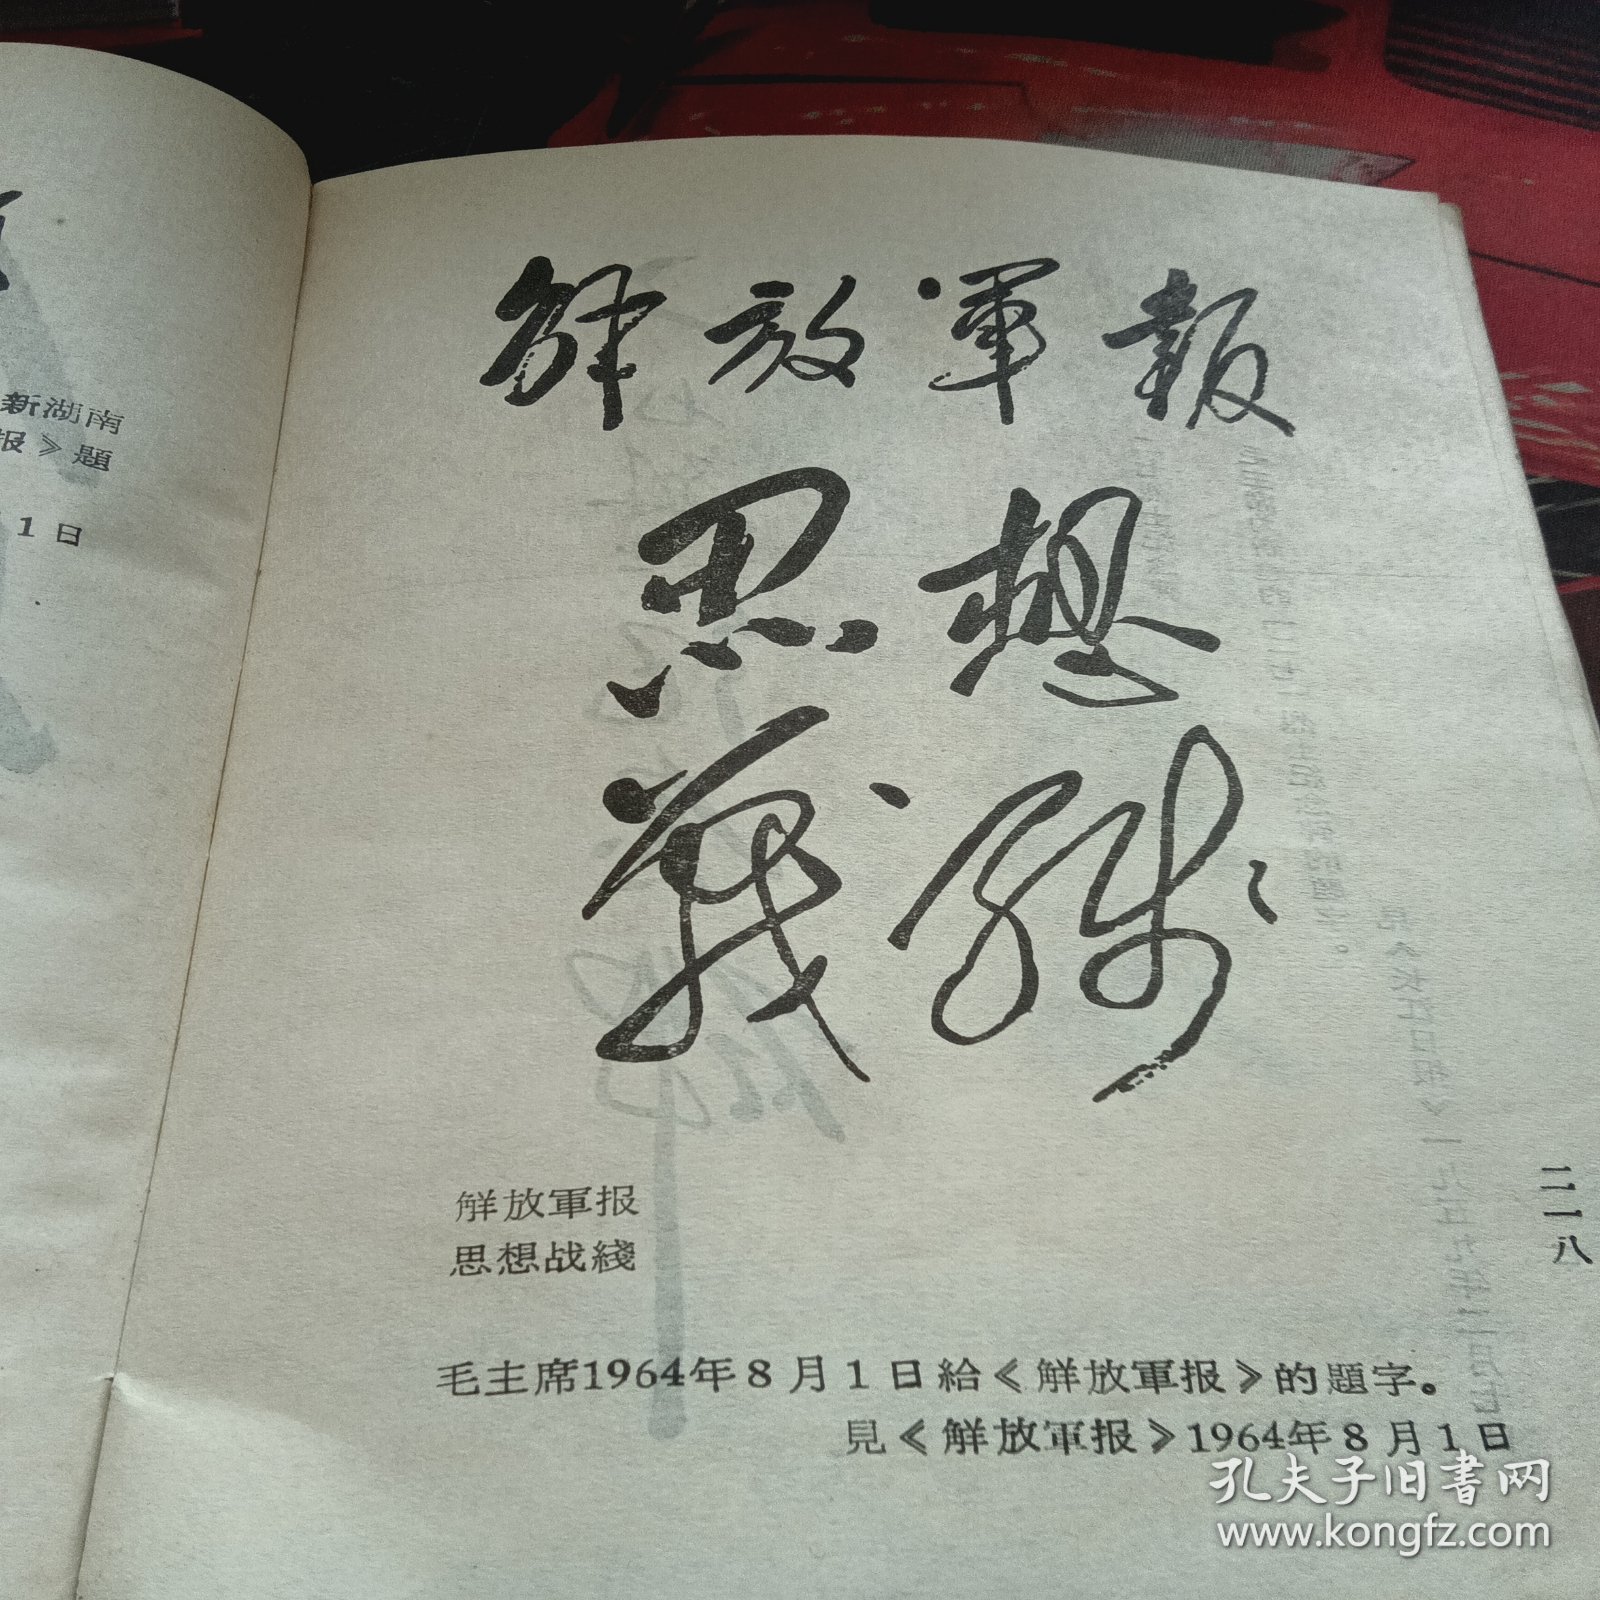 新湖南
报》題
1日
解放軍報
思想
戰綫
解放軍报
思想战綫
毛主席1964年8月1日給《解放軍报》的題字。
見《解放軍报》1964年8月1日
二一八
孔夫子旧書网
www.kongfz.com